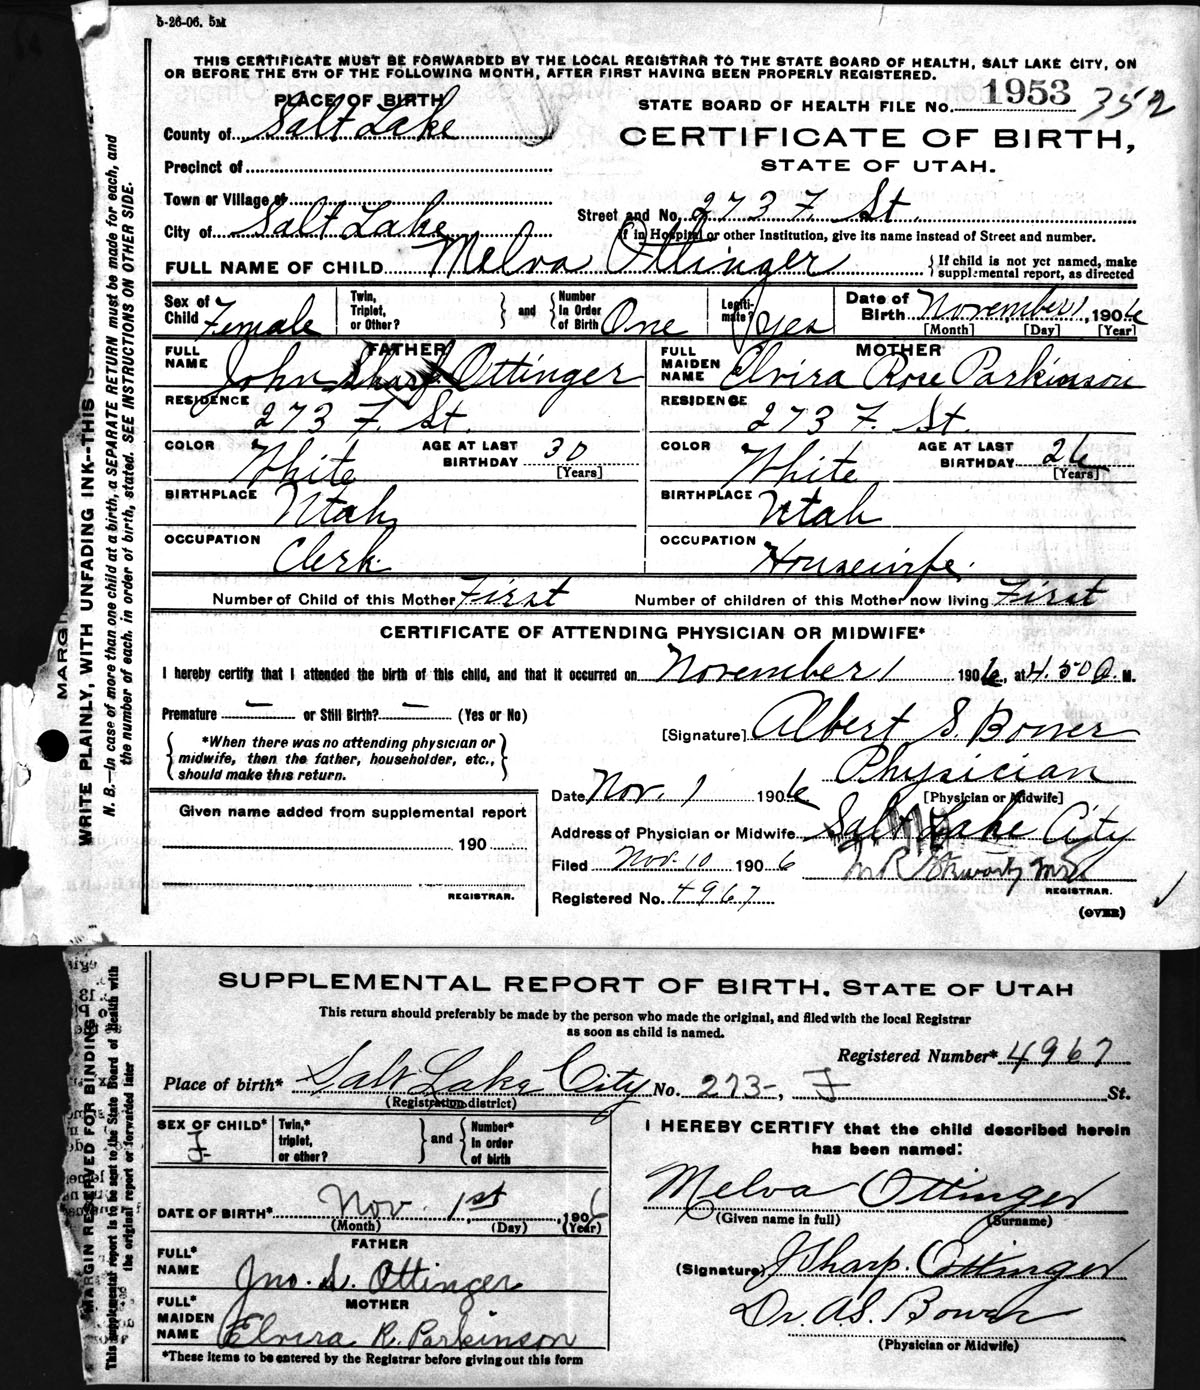 5-26-06. 5M
THIS CERTIFICATE MUST BE FORWARDED BY THE LOCAL REGISTRAR TO THE STATE BOARD OF HEALTH, SALT LAKE CITY, ON
OR BEFORE THE 5TH OF THE FOLLOWING MONTH, AFTER FIRST HAVING BEEN PROPERLY REGISTERED.
PLACE OF BIRTH
STATE BOARD OF HEALTH FILE NO. 1953 352
County of Salt Lake
CERTIFICATE OF BIRTH,
STATE OF UTAH.
Precinct of
Town or Village of
Street and No. 273 F. St.
City of Salt Lake
If in Hospital or other Institution, give its name instead of Street and number.
FULL NAME OF CHILD Melva Ottinger
If child is not yet named, make
supplemental report, as directed
Sex of Child Female
Twin, Triplet, or Other?
and
Number In Order of Birth One
Legiti-mate? yes
Date of Birth November 1, 1906
[Month] [Day] [Year]
FATHER
FULL NAME John Sharp Ottinger
MOTHER
FULL MAIDEN NAME Elvira Rose Parkinson
RESIDENCE 273 F. St.
RESIDENCE 273 F. St.
COLOR White
AGE AT LAST BIRTHDAY 30 [Years]
COLOR White
AGE AT LAST BIRTHDAY 26 [Years]
BIRTHPLACE Utah
BIRTHPLACE Utah
OCCUPATION Clerk
OCCUPATION Housewife.
Number of Child of this Mother First
Number of children of this Mother now living First
CERTIFICATE OF ATTENDING PHYSICIAN OR MIDWIFE*
I hereby certify that I attended the birth of this child, and that it occurred on November 1 1906, at 4.50 a. M.
Premature – or Still Birth? – (Yes or No)
*When there was no attending physician or
midwife, then the father, householder, etc.,
should make this return.
[Signature] Albert S. Bower
Physician
[Physician or Midwife]
Date Nov. 1 1906
Address of Physician or Midwife Salt Lake City
Given name added from supplemental report
190
REGISTRAR.
Filed Nov. 10 1906
REGISTRAR.
Registered No. 4967
(OVER)
MARGIN
WRITE PLAINLY, WITH UNFADING INK--THIS IS A
N. B.--In case of more than one child at a birth, a SEPARATE RETURN must be made for each, and
the number of each, in order of birth, stated. SEE INSTRUCTIONS ON OTHER SIDE.
SUPPLEMENTAL REPORT OF BIRTH, STATE OF UTAH
This return should preferably be made by the person who made the original, and filed with the local Registrar
as soon as child is named.
Registered Number* 4967
Place of birth* Salt Lake City No. 273-, F St.
(Registration district)
SEX OF CHILD* F
Twin,* triplet, or other?
and
Number* in order of birth
I HEREBY CERTIFY that the child described herein
has been named:
Melva Ottinger
(Given name in full) (Surname)
DATE OF BIRTH* Nov. 1st, 1906
(Month) (Day) (Year)
FATHER
FULL* NAME Jno. S. Ottinger
(Signature) J Sharp. Ottinger
MOTHER
FULL* MAIDEN NAME Elvira R. Parkinson
Dr. A S. Bower
(Physician or Midwife)
*These items to be entered by the Registrar before giving out this form
MARGIN RESERVED FOR BINDING
This supplemental report is to be sent to the State Board of Health with
the original report or forwarded later